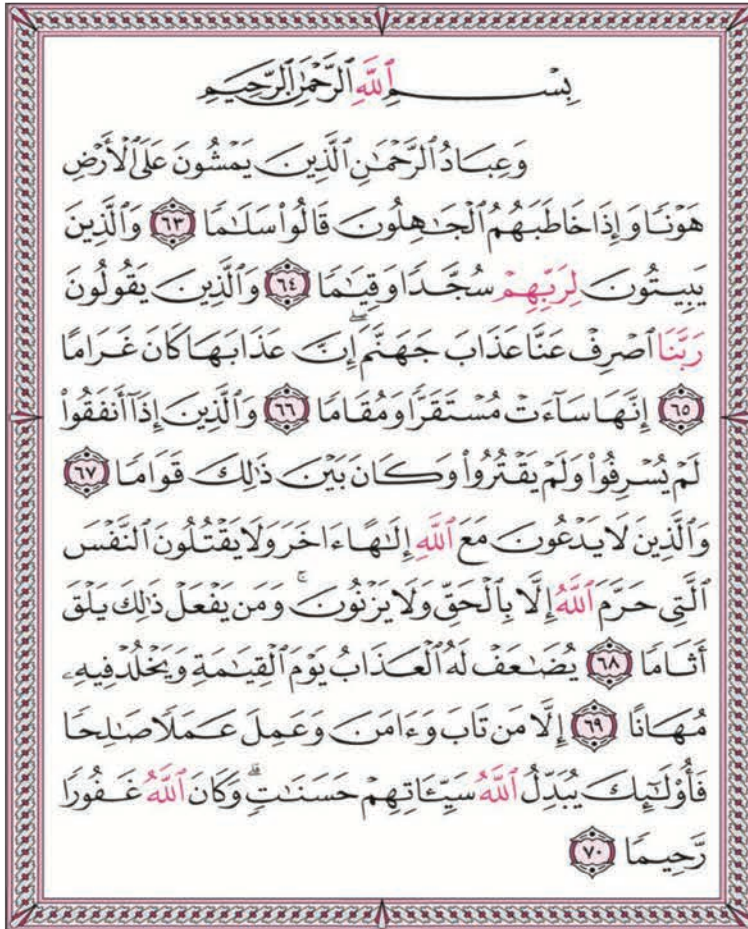 بِسْمِ ٱللَّهِ ٱلرَّحْمَٰنِ ٱلرَّحِيمِ
وَعِبَادُ ٱلرَّحْمَٰنِ ٱلَّذِينَ يَمْشُونَ عَلَى ٱلْأَرْضِ
هَوْنًا وَإِذَا خَاطَبَهُمُ ٱلْجَٰهِلُونَ قَالُوا۟ سَلَٰمًا ٦٣ وَٱلَّذِينَ
يَبِيتُونَ لِرَبِّهِمْ سُجَّدًا وَقِيَٰمًا ٦٤ وَٱلَّذِينَ يَقُولُونَ
رَبَّنَا ٱصْرِفْ عَنَّا عَذَابَ جَهَنَّمَ ۖ إِنَّ عَذَابَهَا كَانَ غَرَامًا
٦٥ إِنَّهَا سَآءَتْ مُسْتَقَرًّا وَمُقَامًا ٦٦ وَٱلَّذِينَ إِذَآ أَنفَقُوا۟
لَمْ يُسْرِفُوا۟ وَلَمْ يَقْتُرُوا۟ وَكَانَ بَيْنَ ذَٰلِكَ قَوَامًا ٦٧
وَٱلَّذِينَ لَا يَدْعُونَ مَعَ ٱللَّهِ إِلَٰهًا ءَاخَرَ وَلَا يَقْتُلُونَ ٱلنَّفْسَ
ٱلَّتِى حَرَّمَ ٱللَّهُ إِلَّا بِٱلْحَقِّ وَلَا يَزْنُونَ ۚ وَمَن يَفْعَلْ ذَٰلِكَ يَلْقَ
أَثَامًا ٦٨ يُضَٰعَفْ لَهُ ٱلْعَذَابُ يَوْمَ ٱلْقِيَٰمَةِ وَيَخْلُدْ فِيهِۦ
مُهَانًا ٦٩ إِلَّا مَن تَابَ وَءَامَنَ وَعَمِلَ عَمَلًا صَٰلِحًا
فَأُو۟لَٰٓئِكَ يُبَدِّلُ ٱللَّهُ سَيِّـَٔاتِهِمْ حَسَنَٰتٍ ۗ وَكَانَ ٱللَّهُ غَفُورًا
رَّحِيمًا ٧٠